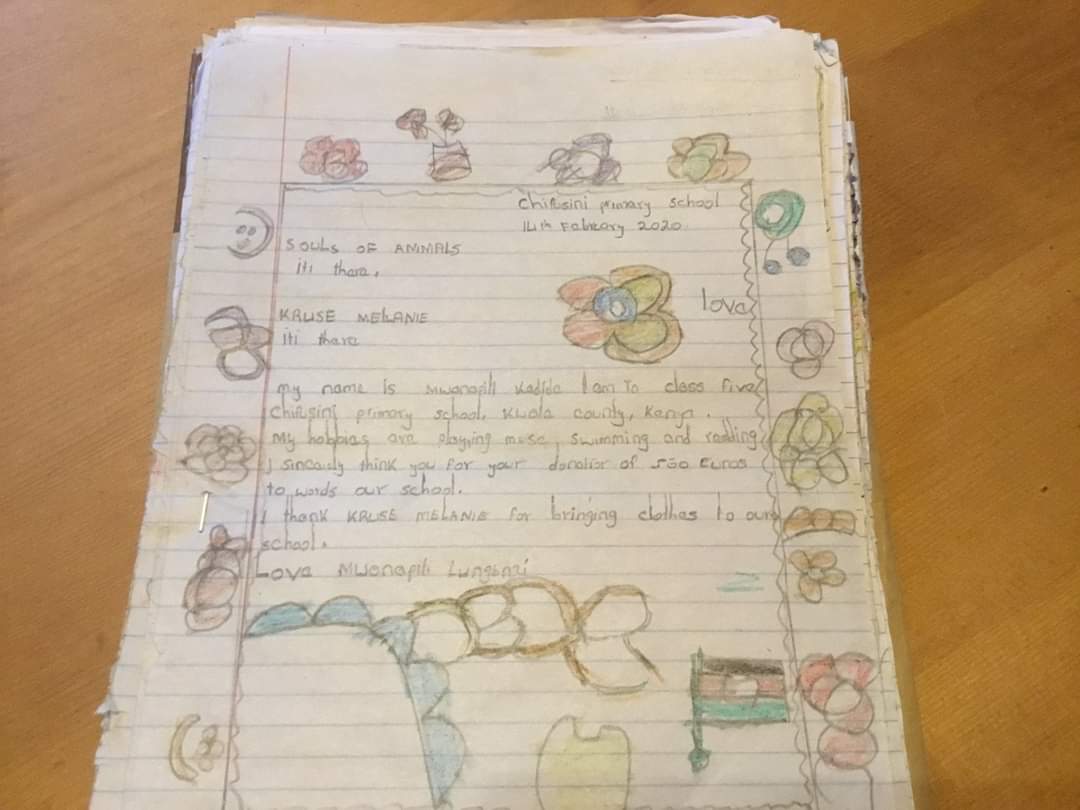 Chifusini primary school
14th Febreary 2020
SOULS OF ANIMALS
iti thara,
love
KRUSE MELANIE
iti thara
my name is Mwanapili Kadida I am To class five
Chifusini primary school, Kwala county, Kenya.
My hobbias are playying muse, swimming and redding
I sincasly think you for your donatior of 500 Euros
to words our school.
I thank KRUSE MELANIE for bringing clothes to our
school.
Love Mwanapili